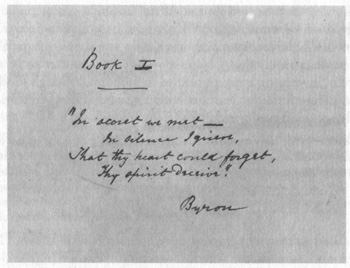 Book I
"In secret we met —
In silence I grieve,
That thy heart could forget,
Thy spirit deceive".
Byron